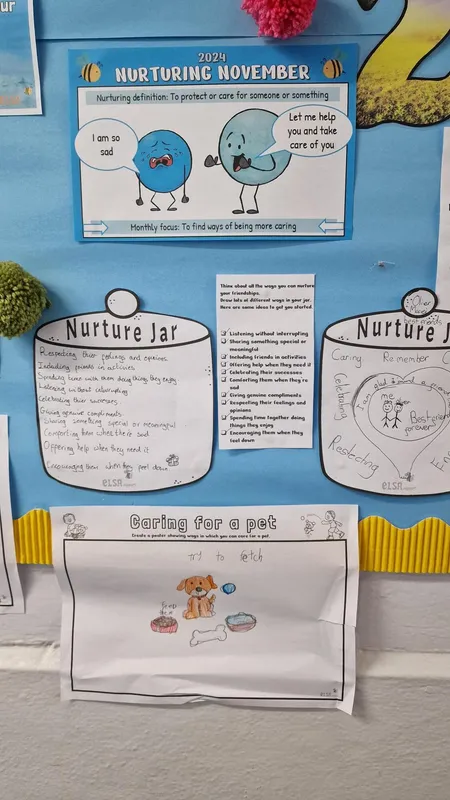 ur
2024
NURTURING NOVEMBER
Nurturing definition: To protect or care for someone or something
I am so
sad
Let me help
you and take
care of you
Monthly focus: To find ways of being more caring
Nurture Jar
Respecting their feelings and opinions
Including friends in activies
Spending time with them doing things they enjoy
Listening without interrupting
Celebrating their successes
Giving genuine compliments
Sharing something special or meaningful
Comforting them when there sad
Offering help when they need it
Encouraging them when they feel down
eLSA
Think about all the ways you can nurture
your friendships.
Draw lots of different ways in your jar.
Here are some ideas to get you started
Listening without interrupting
Sharing something special or
meaningful
Including friends in activities
Offering help when they need it
Celebrating their successes
Comforting them when they're
sad
Giving genuine compliments
Respecting their feelings and
opinions
Spending time together doing
things they enjoy
Encouraging them when they
feel down
Nurture J
Caring
Remember
Celebrating
me
Best friends
forever
Respecting
eLSA
Caring for a pet
Create a poster showing ways in which you can care for a pet.
try to fetch
eLSA